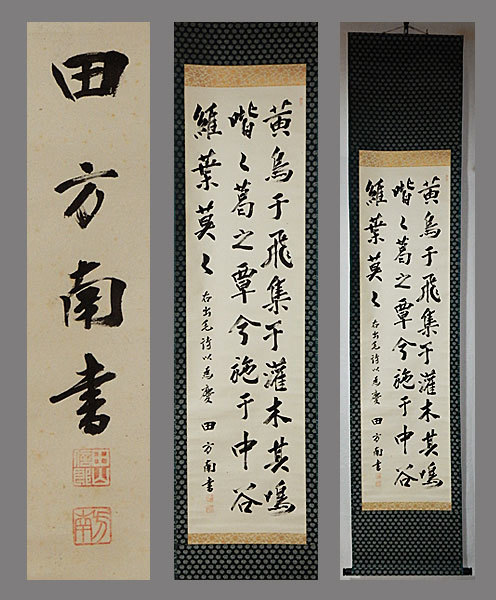 田方南書
方南
黄鳥于飛集于灌木其鳴
喈〻葛之覃兮施于中谷
維葉莫〻
右出毛詩以為慶 田方南書
黄鳥于飛集于灌木其鳴
喈〻葛之覃兮施于中谷
維葉莫〻
右出毛詩以為慶 田方南書